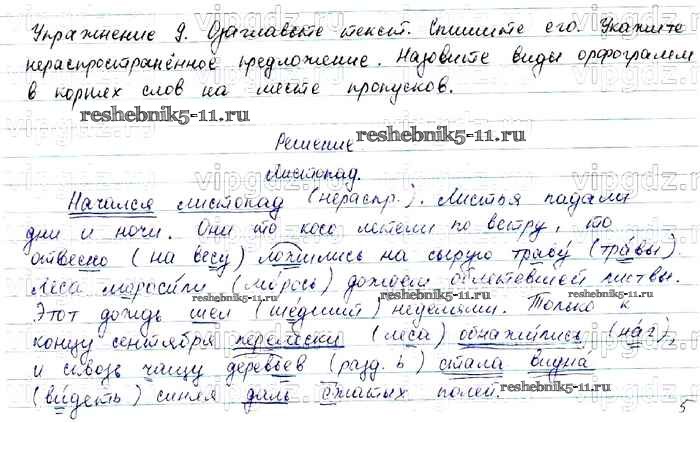 Упражнение 9. Озаглавьте текст. Спишите его. Укажите
нераспространённое предложение. Назовите виды орфограмм
в корнях слов на месте пропусков.
reshebnik5-11.ru
Решение
reshebnik5-11.ru
Листопад.
Начался листопад (нераспр.). Листья падали
дни и ночи. Они то косо летели по ветру, то
отвесно (на весу) ложились на сырую траву (травы).
Леса моросили (морось) дождём облетевшей листвы.
reshebnik5-11.ru
reshebnik5-11.ru
Этот дождь шел (шедший) неделями. Только к
концу сентября перелески (леса) обнажились (наг),
и сквозь чащу деревьев (разд. ь) стала видна
(видеть) синяя даль сжатых полей.
reshebnik5-11.ru
5